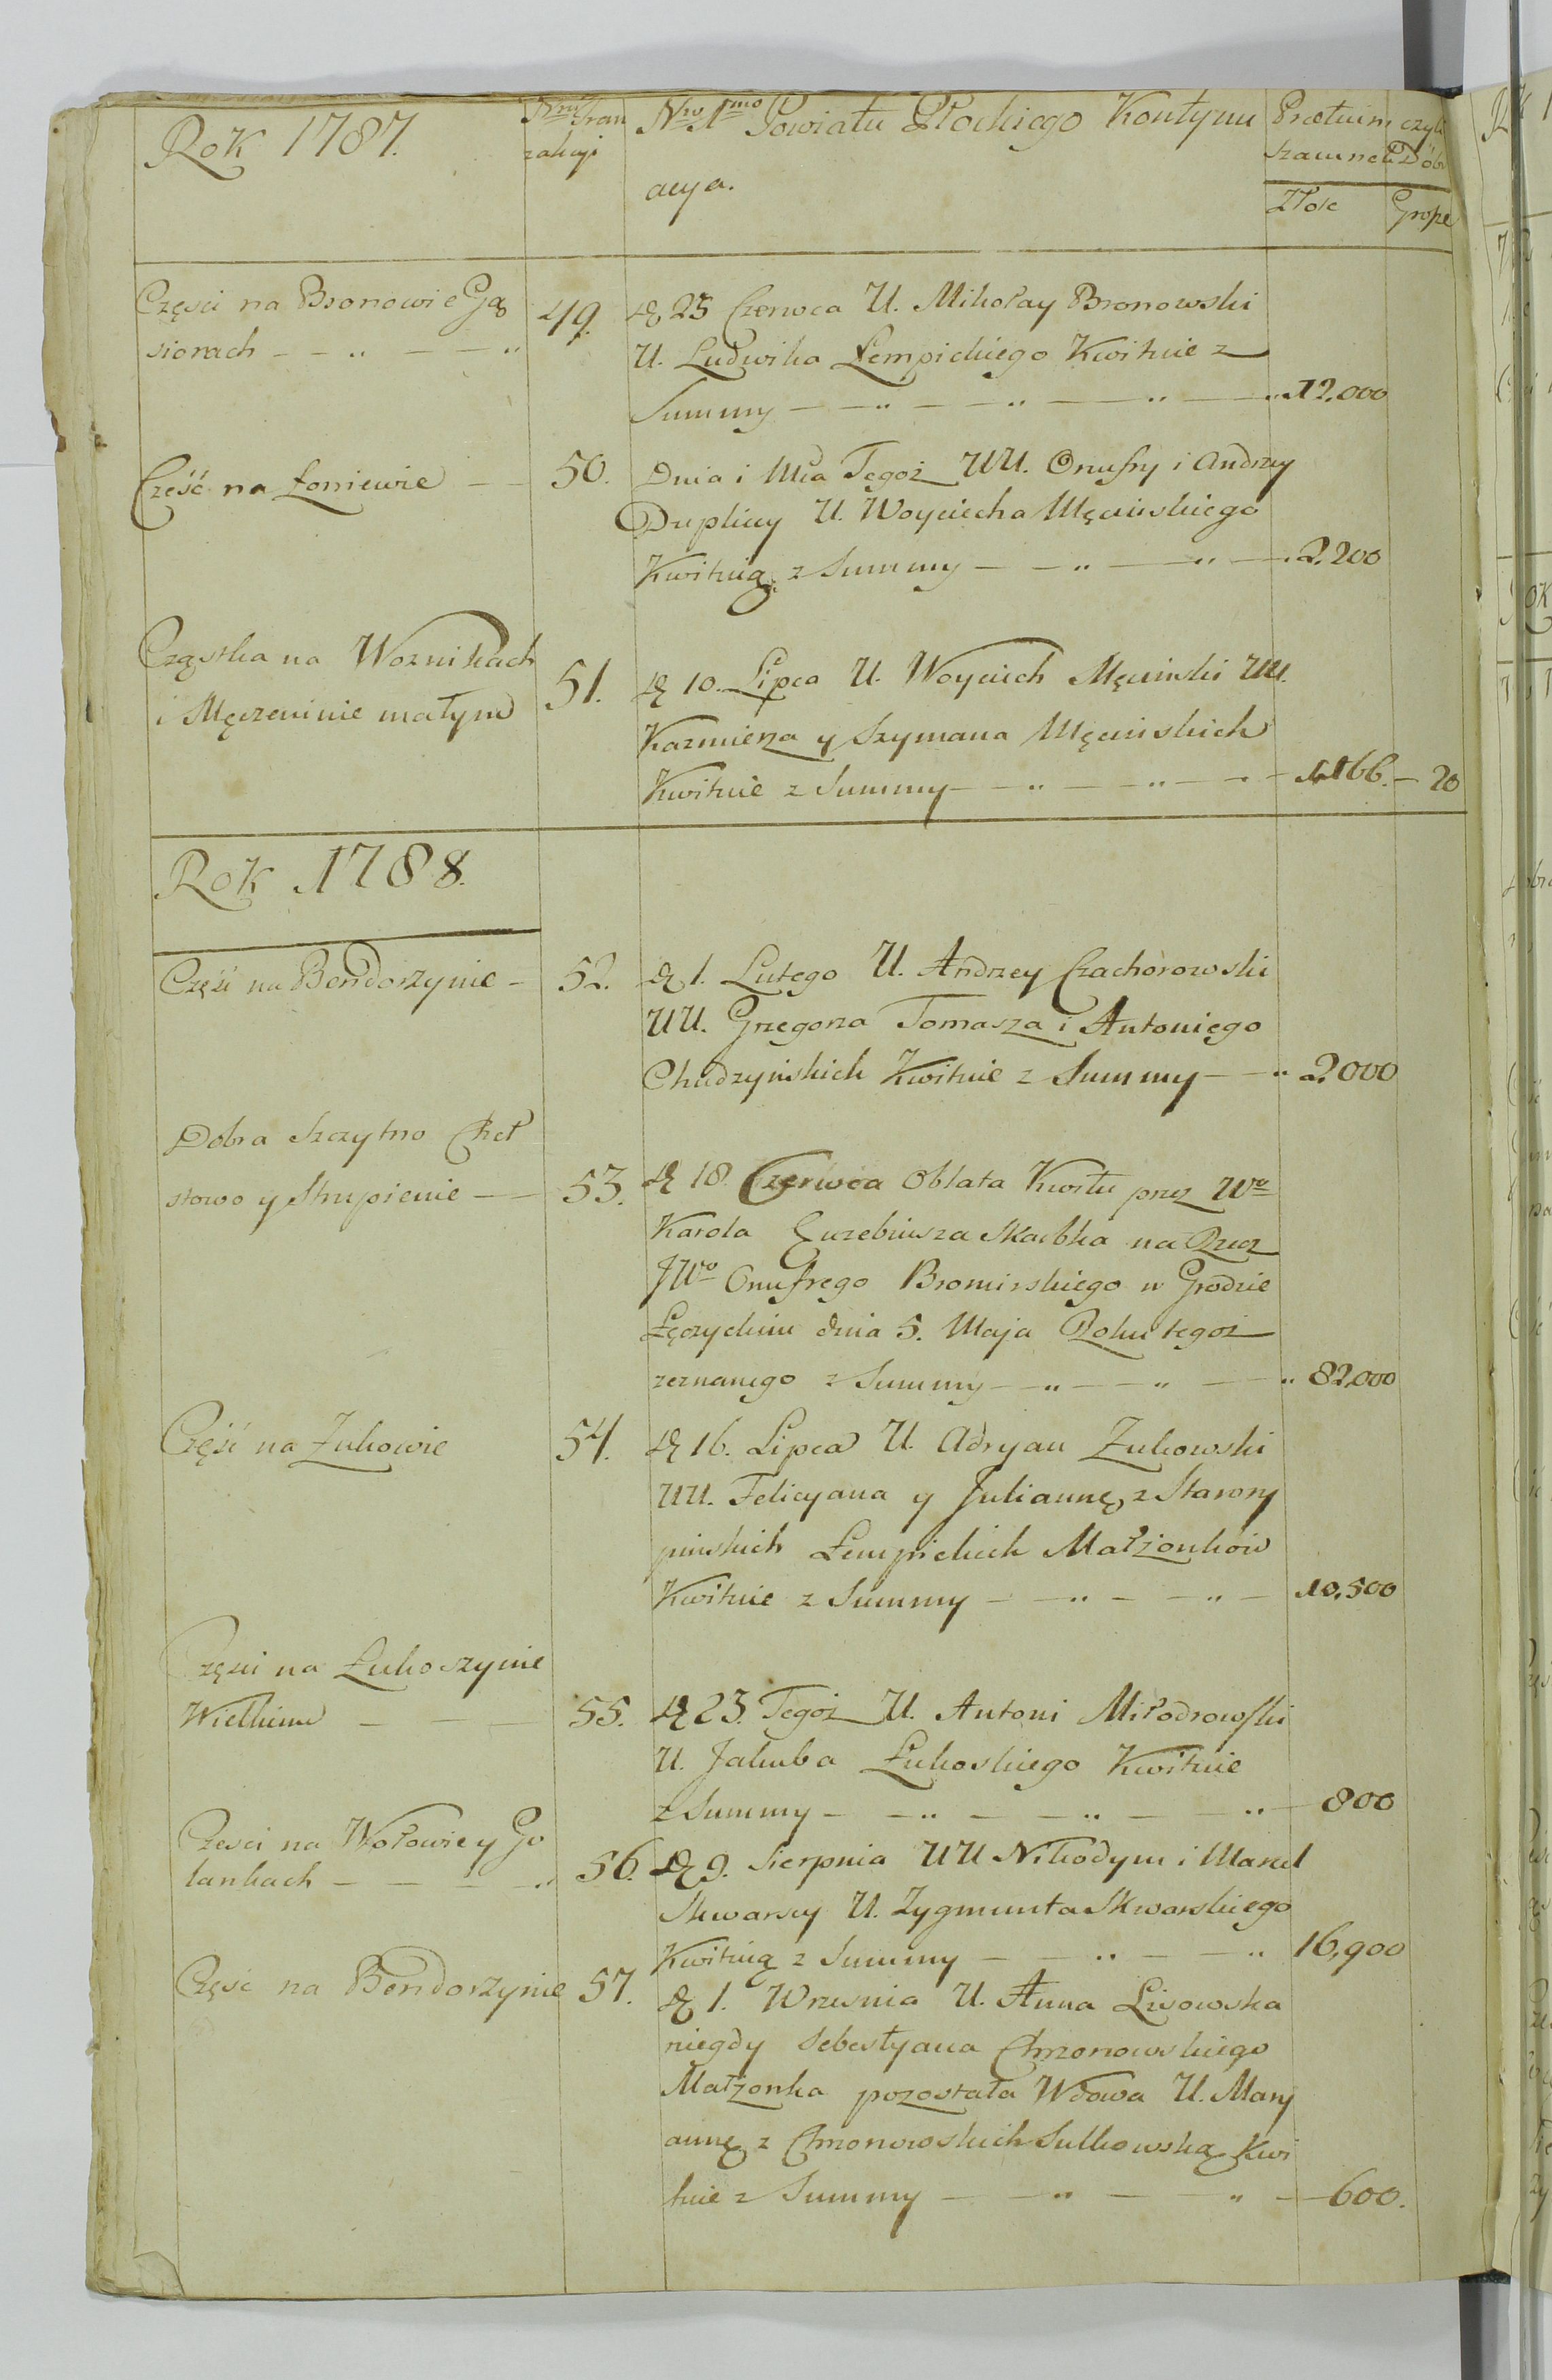 Rok 1787.
Nru Tran
zakcyi
Nro 1mo Powiatu Płockiego Kontynu
acya.
Pretium czyli
szacunek Dóbr
Złote
Grosze
Części na Bronowie Gą
siorach — — „ — — „
49.
D. 25 Czerwca U. Mikołay Bronowski
U. Ludwika Łempickiego Kwituie z
Summy — — „ — — „ — — „ — — 12,000
Część na Łoniewie — —
50.
Dnia i Mca Tegoż UU. Onufry i Andrzey
Duplicy U. Woyciecha Męcińskiego
Kwituią z Summy — — „ — — „ — 2,200
Cząstka na Woznikach
i Męczeninie małym
51.
D. 10. Lipca U. Woyciech Męciński UU.
Kazmierza y Szymana Męcińskich
Kwituie z Summy — — „ — — „ — — 1166. — 20
Rok 1788.
Część na Bendorzynie —
52.
D. 1. Lutego U. Andrzey Czachorowski
UU. Grzegorza Tomasza i Antoniego
Chudzyńskich Kwituie z Summy — — „ 2,000
Dobra Szczytno Cheł
stowo y Strupienie — —
53.
D. 18. Czerwca Oblata Kwitu przez Wo
Karola Euzebiusza Skarbka na Rzecz
JWo Onufrego Bromirskiego w Grodzie
Łęczyckim dnia 5. Maja Roku tegoż
zeznanego z Summy — „ — — „ — — „ 82,000
Część na Żukowie
54.
D. 16. Lipca U. Adryan Zukowski
UU. Felicyana y Juliannę z Starory
pińskich Łempickich Małżonków
Kwituie z Summy — — „ — — „ — 10,500
Części na Łukoszynie
Wielkim — —
55.
D. 23. Tegoż U. Antoni Miłodrowski
U. Jakuba Łukoskiego Kwituie
z Summy — — „ — — „ — — „ — 800
Czesci na Wołowie y Go
lankach — — — — „
56.
D. 9. Sierpnia UU Nikodym i Marcel
Skwarscy U. Zygmunta Skwarskiego
Kwituią z Summy — — „ — — „ 16,900
Częsc na Bendorzynie
57.
D. 1. Wrzesnia U. Anna Lisowska
niegdy Sebestyana Chrzonowskiego
Małżonka pozostała Wdowa U. Mary
annę z Chrzonowskich Sulkowską Kwi
tuie z Summy — — „ — — „ — 600.